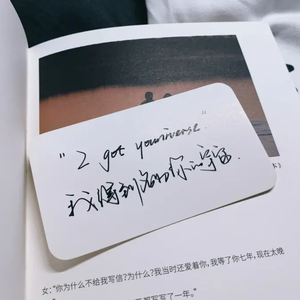 "I got youniverse"
我得到名为你的宇宙.
女:"你为什么不给我写信?为什么?我当时还爱着你,我等了你七年,现在太晚
写了一年。"